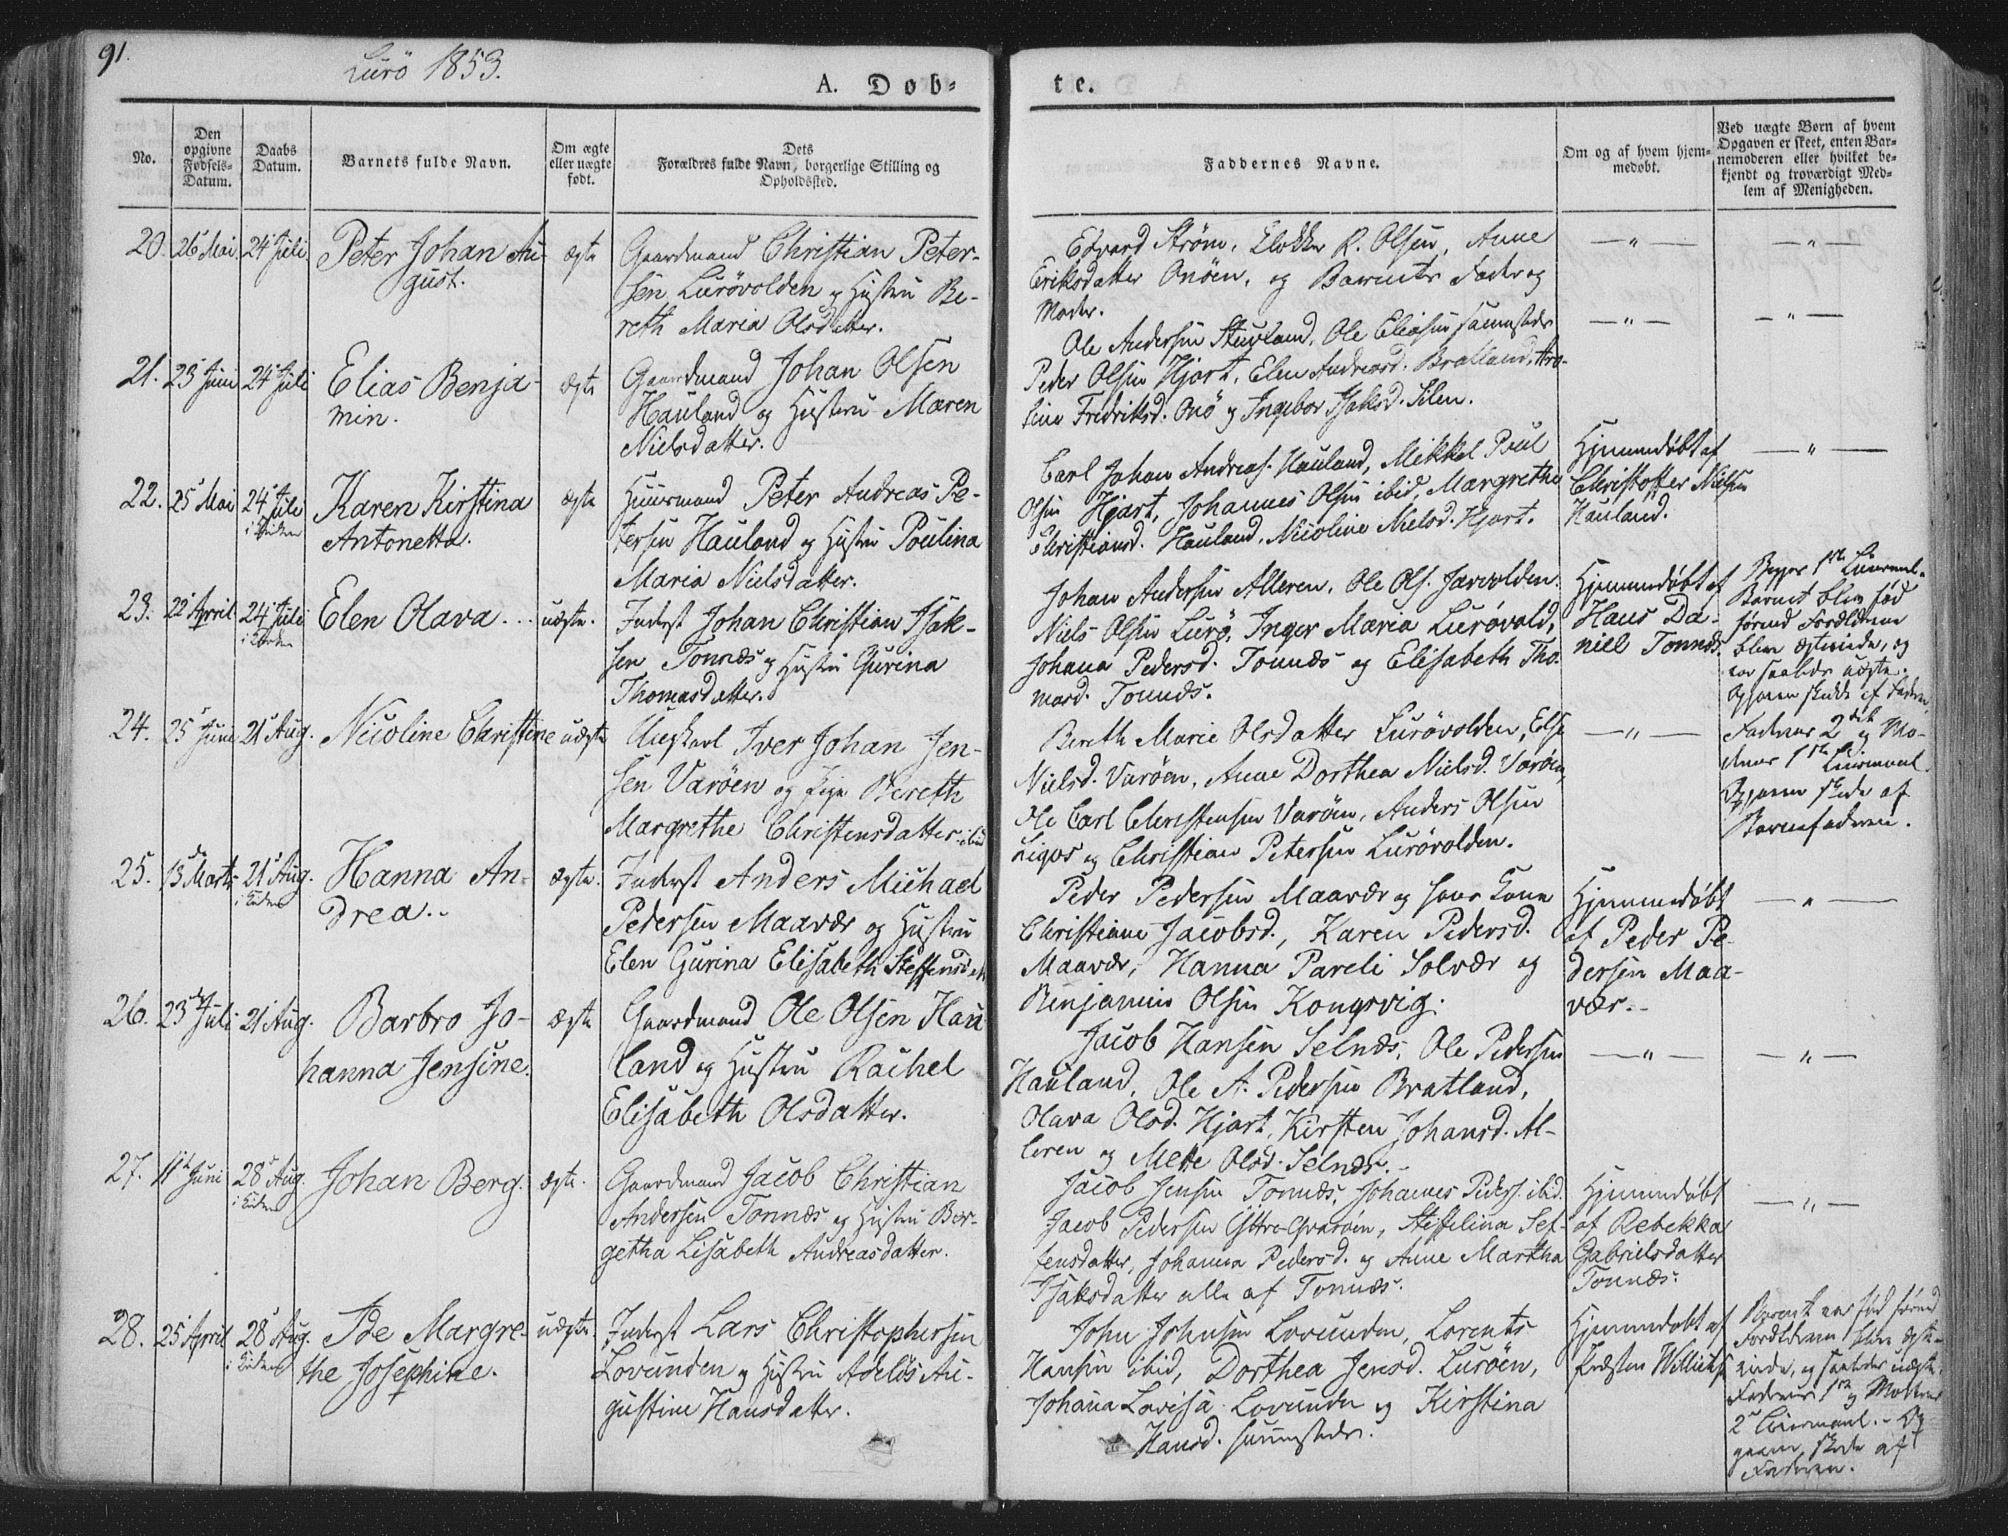 91.
Lurö 1853.
A. Døb=
te.
No.
Den opgivne Fødsels-Datum.
Daabs Datum.
Barnets fulde Navn.
Om ægte eller uægte født.
Dets Forældres fulde Navn, borgerlige Stilling og Opholdssted.
Faddernes Navne.
Om og af hvem hjemmedøbt.
Ved uægte Børn af hvem Opgaven er skeet, enten Barnemoderen eller hvilket bekjendt og troværdigt Medlem af Menigheden.
20. 26 Mai 24 Juli Peter Johan Au-
gust.
ægte
Gaardmand Christian Peter-
sen Lurövolden og Hustru Be-
reth Maria Olsdatter.
Edvard Strøm, Klokker R. Olsen, Anne
Eriksdatter Onöen, og Barnets Fader og
Moder.
— " —
— " —
21. 23 Juni 24 Juli Elias Benja-
min.
ægte
Gaardmand Johan Olsen
Hauland og Hustru Maren
Nielsdatter.
Ole Andersen Stuvland, Ole Eliasen sammesteds
Peder Olsen Hjart, Elen Andreasd. Bratland, Karo-
line Fredriksd. Onö og Ingebor Isaksd. Silen.
— " —
— " —
22. 25 Mai 24 Juli
i Kirken
Karen Kirstina
Antonetta.
ægte
Huusmand Peter Andreas Pe-
tersen Hauland og Hustru Poulina
Maria Nielsdatter.
Carl Johan Andreas. Hauland, Mikkel Poul
Olsen Hjart, Johannes Olsen ibid, Margrethe
Christiansd. Hauland, Nicoline Nielsd. Hjart.
Hjemmedøbt af
Christoffer Nielsen
Hauland.
— " —
23. 22 April 24 Juli
i Kirken
Elen Olava...
uægte.
Inderst Johan Christian Isak-
sen Tonnæs og Hustru Gurina
Thomasdatter.
Johan Andersen Alleren, Ole Ols. Jarvolden.
Niels Olsen Lurö, Inger Maria Lurövold,
Johana Pedersd. Tonnæs og Elisabeth Tho-
masd. Tonnæs.
Hjemmedøbt af
Hans Da-
niel Tonnæs.
Begges 1ste Leiermaal.
Barnet blev fød
førend Forældrene
bleve ægteviede, og
var saaledes uægte.
Opgaven skede af Faderen.
24. 25 Juni 21 Aug. Nicoline Christine
uægte
Ungkarl Iver Johan Jen-
sen Varöen og Pige Bereth
Margrethe Christensdatter ibid
Bereth Marie Olsdatter Lurövolden, Else
Nielsd. Varöen, Anne Dorthea Nielsd. Varöen,
Ole Carl Christensen Varöen, Anders Olsen
Ligos og Christian Petersen Lurövolden.
— " —
Faderens 2det og Mo-
derens 1ste Leiermaal.
Opgaven skede af
Barnefaderen.
25. 13 Marts 21 Aug.
i Kirken
Hanna An-
drea..
ægte.
Inderst Anders Michael
Pedersen Maavær og Hustru
Elen Gurina Elisabeth Steffensdatt
Peder Pedersen Maavær og hans Kone
Christiane Jacobsd., Karen Pedersd.
Maavær, Hanna Pareli Solvær og
Benjamin Olsen Kongsvig.
Hjemmedøbt
af Peder Pe-
dersen Maa-
vær..
— " —
26. 23 Juli 21 Aug. Barbro Jo-
hanna Jensine.
ægte
Gaardmand Ole Olsen Hau-
land og Hustru Rachel
Elisabeth Olsdatter.
Jacob Hansen Selnæs, Ole Pedersen
Hauland, Ole A. Pedersen Bratland,
Olava Olsd. Hjart, Kirsten Johansd. Al-
leren og Mette Olsd. Selnæs.
— " —
— " —
27. 11 Juni 28 Aug.
i Kirken
Johan Berg.
ægte.
Gaardmand Jacob Christian
Andersen Tonnæs og Hustru Ber-
getha Lisabeth Andreasdatter.
Jacob Jensen Tonnæs, Johannes Peders. ibid.
Jacob Pedersen Yttre-Qvaröen, Steffelina Stef-
fensdatter, Johanna Pedersd. og Anne Martha
Isaksdatter alle af Tonnæs.
Hjemmedøbt
af Rebekka
Gabrielsdatter
Tonnæs.
— " —
28. 25 April 28 Aug.
i Kirken
Ide Margre-
the Josephine.
uægte.
Inderst Lars Christophersen
Lovunden og Hustru Adelös Au-
gustine Hansdatter.
John Johnsen Lovunden, Lorents
Hansen ibid, Dorthea Jensd. Luröen,
Johana Lovisa Lovunden og Kirstina
Hansd. sammesteds.
Hjemmedøbt af
Præsten
Barnet var fød førend
Forældrene bleve ægte-
viede, og saaledes uægte.
Faderens 1ste og Moderens
2det Leiermaal. - Op-
gaven skede af
Faderen.